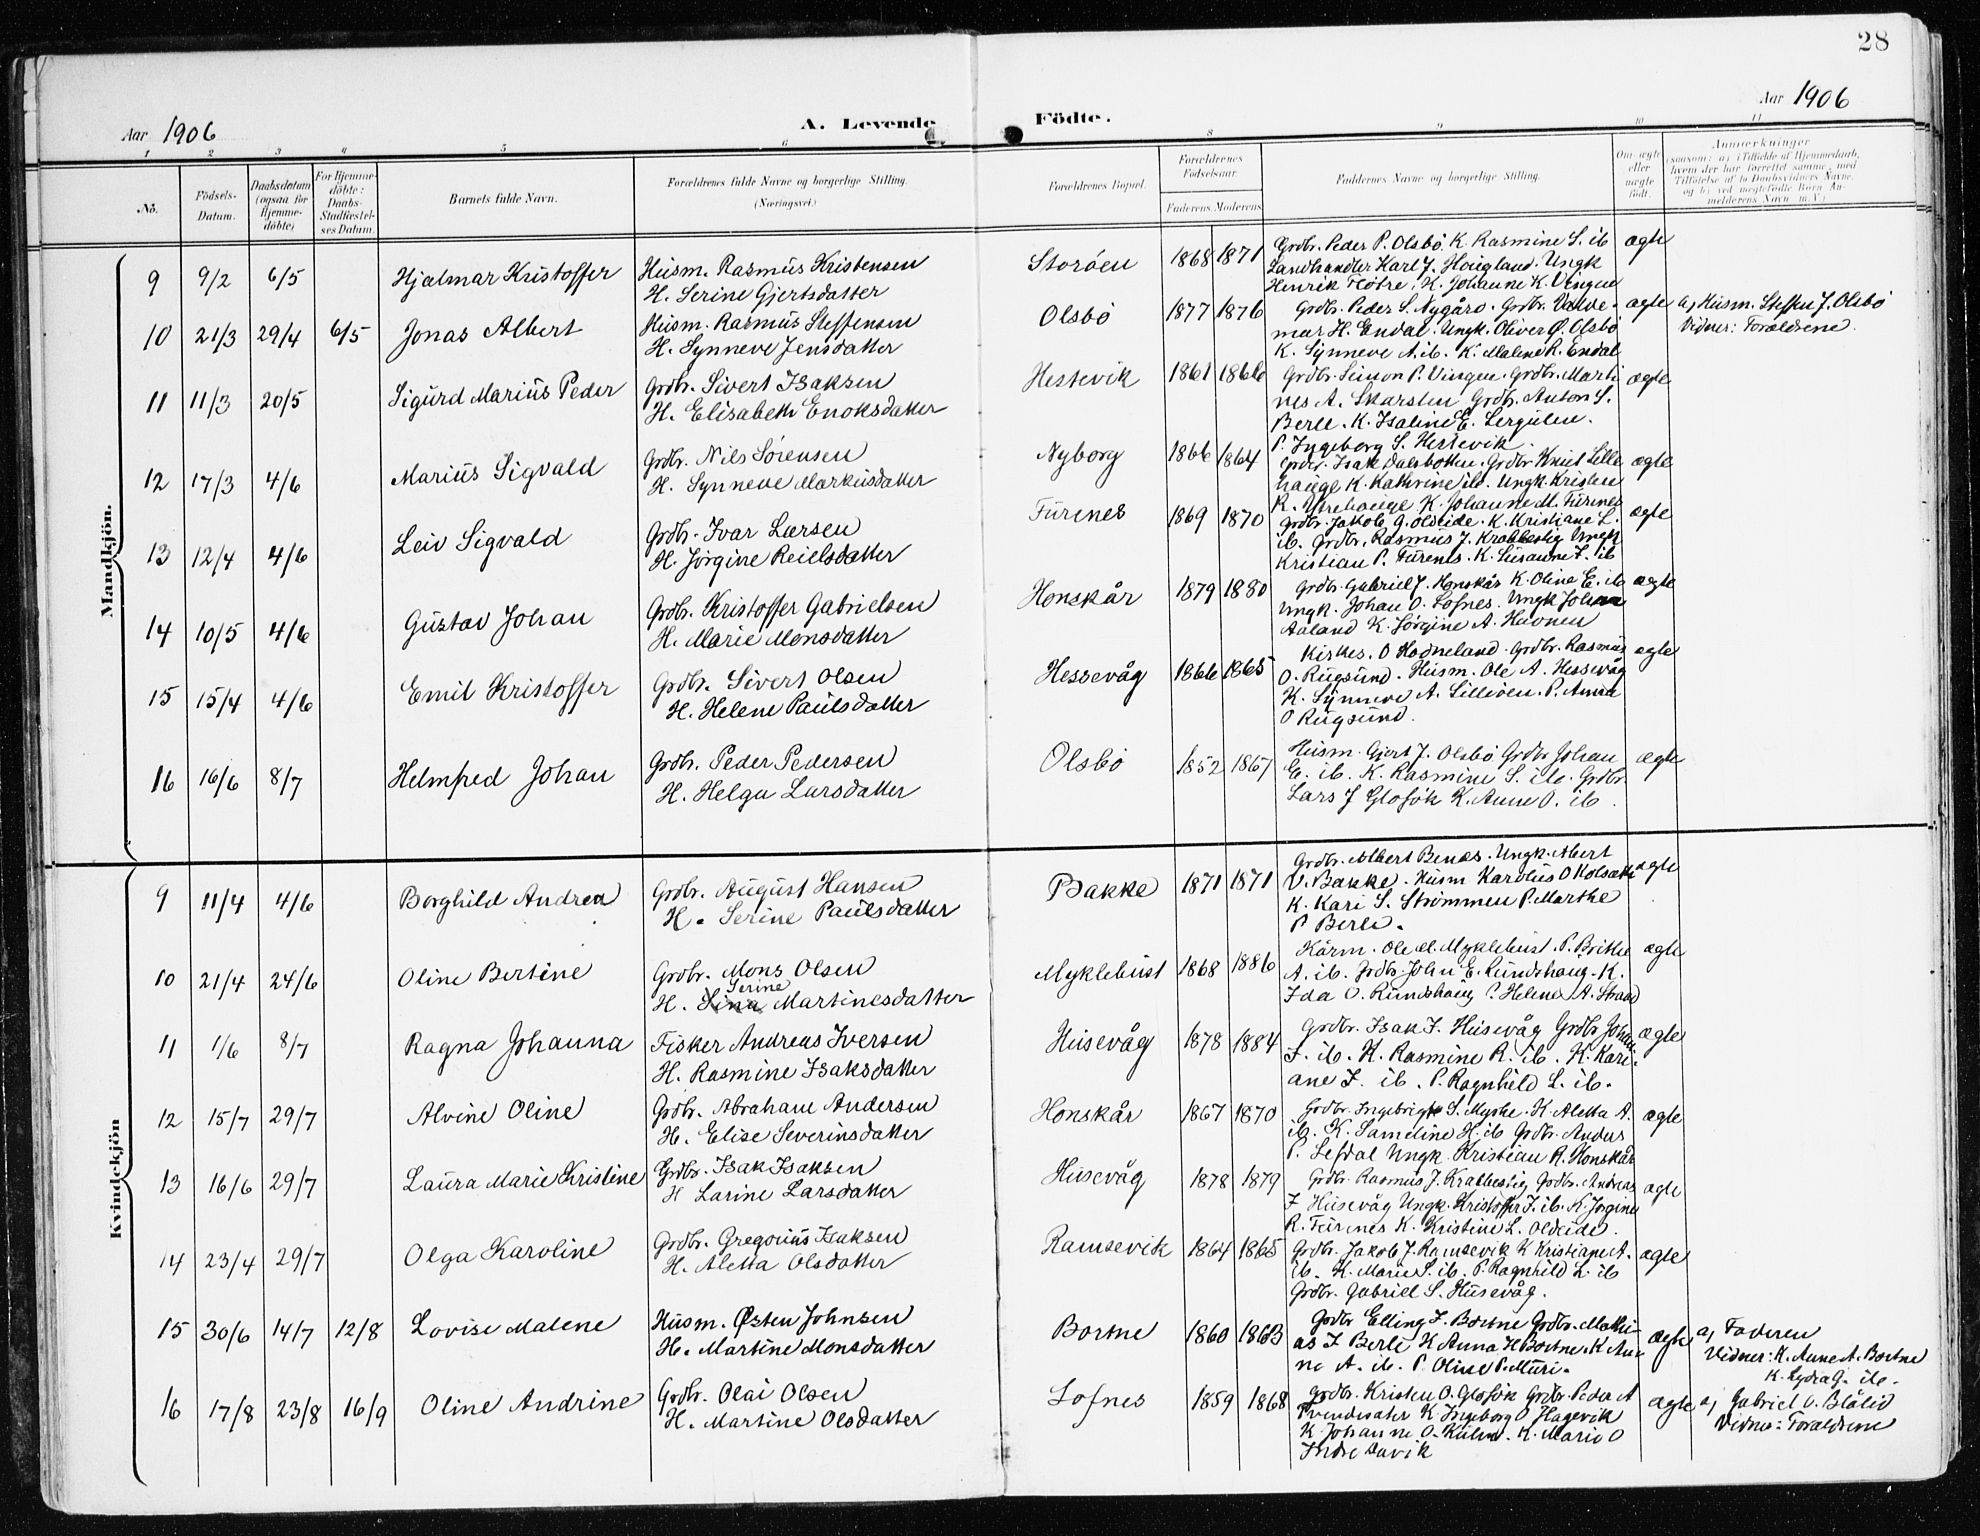 28
Aar 1906
A. Levende Födte.
Aar 1906
1 2 3 4 5 6 8 9 10 11
No.
Födsels-
Datum.
Daabsdatum
(ogsaa for
Hjemme-
döbte)
For Hjemme-
döbte:
Daabs-
Stadfæstel-
ses Datum.
Barnets fulde Navn.
Forældrenes fulde Navne og borgerlige Stilling.
(Næringsvei.)
Forældrenes Bopæl.
Forældrenes
Födselsaar.
Faderens. Moderens.
Faddernes Navne og borgerlige Stilling.
Om ægte
eller
uægte
födt.
Anmærkninger
(saasom: a) i Tilfælde af Hjemmedaab,
hvem der har forrettet samme, med
Tilföielse af to Daabsvidners Navne,
og b) ved uægtefödte Børn An-
melderens Navn m. V.)
Mandkjön.
9 9/2 6/5 Hjalmar Kristoffer
Husm. Rasmus Kristensen
H. Serine Gjertsdatter
Storöen 1868 1871
Grdbr. Peder P. Olsbö. K. Rasmine S. ib
Landhandler Karl J. Hougland. Ungk
Henrik Flötre. K. Johanne K. Vingen
ægte
10 21/3 29/4 6/5 Jonas Albert
Husm. Rasmus Steffensen
H. Synneve Jensdatter
Olsbö 1877 1876
Grdbr. Peder S. Nygård. Grdbr. Valde-
mar H. Endal. Ungk. Oliver Ø. Olsbö
K. Synneve A. ib. K. Maline R. Endal
ægte
a, Husm. Steffen J. Olsbö
Vidner: Forældrene.
11 11/3 20/5 Sigurd Marius Peder
Grdbr. Sivert Isaksen
H. Elisabeth Enoksdatter
Hestevik 1861 1866
Grdbr. Simon P. Vingen. Grdbr. Marti
nes A. Skarsten Grdb. Anton S.
Berle. K. Isaline E. Sergulen.
P. Ingeborg S. Hestevik.
ægte
12 17/3 4/6 Marius Sigvald
Grdbr. Nils Sørensen
H. Synneve Markusdatter
Nyborg 1866 1864
Grdbr. Isak Dalsbotten. Grdbr Knut Lille
hauge K. Kathrine ib. Ungk. Kristen
R. Ytrehauge K. Johanne M. Furenes
ægte
13 12/4 4/6 Leiv Sigvald
Grdbr. Ivar Larsen
H. Jörgine Reielsdatter
Furenes 1869 1870
Grdbr. Jakob G. Oldeide. K. Kristiane L.
ib. Grdbr. Rasmus J. Krabbestig Ungk
Kristian P. Furenes. K. Susanne I. ib
ægte
14 10/5 4/6 Gustav Johan
Grdbr. Kristoffer Gabrielsen
H. Marie Monsdatter
Honskår 1879 1880
Grdbr. Gabriel J. Honskår K. Oline E. ib
Ungk. Johan O. Sofnes. Ungk Johan
Aaland K. Jörgine A. Havnen
ægte
15 15/4 4/6 Emil Kristoffer
Grdbr. Sivert Olsen
H. Helene Paulsdatter
Hessevåg 1866 1865
Kirkes. O Hodneland. Grdbr. Rasmus
O. Rugsund. Husm. Ole A. Hessevåg
K. Synneve A. Lilliöen. P. Anna
O Rugsund.
ægte
16 16/6 8/7 Helmfred Johan
Grdbr. Peder Pedersen
H. Helga Larsdatter
Olsbö 1852 1867
Husm. Gjert J. Olsbö Grdbr Johan
E. ib. K. Rasmine S. ib. Grdbr
Lars J Glofök K. Anne O. ib.
ægte
Kvindekjön
9 11/4 4/6 Borghild Andrea
Grdbr. August Hansen
H. Serine Paulsdatter
Bakke 1871 1871
Grdbr. Albert Benæs. Ungk. Albert
V. Bakke. Husm Karolus O Kolsæth
K. Kari S. Strömmen P. Marthe
P Berle.
ægte
10 21/4 24/6 Oline Bertine
Grdbr. Mons Olsen
Serine
H. Sina Martinesdatter
Myklebust 1868 1886
Kårm. Ole M. Myklebust. P. Brithe
A. ib. Grdbr. John E. Rundshaug. K.
Ida O. Rundshaug P. Helene A. Straad
ægte
11 1/6 8/7 Ragna Johanna
Fisker Andreas Iversen
H. Rasmine Isaksdatter
Husevåg 1878 1884
Grdbr. Isak I. Husevåg Grdbr Johan
I. ib. K. Rasmine R. ib. K. Kari-
ane I. ib. P. Ragnhild L. ib.
ægte
12 15/7 29/7 Alvine Oline
Grdbr. Abraham Andersen
H. Elise Severinsdatter
Honskår 1867 1870
Grdbr. Ingebrigt S. Myhre. K. Aletta A.
ib. K. Sameline H. ib Grdbr. Anders
P. Sefdal Ungk. Kristian R. Honskår
ægte
13 16/6 29/7 Laura Marie Kristine
Grdbr. Isak Isaksen
H Larine Larsdatter
Husevåg 1878 1879
Grdbr. Rasmus J. Krabbestig Grdbr. Andreas
I Husevåg Ungk. Kristoffer I. ib. K. Jörgine
R. Furenes K. Kristine L. Oldeide.
ægte
14 23/4 29/7 Olga Karoline
Grdbr. Gregorius Isaksen
H. Aletta Olsdatter
Ramsevik 1864 1865
Grdbr. Jakob J. Ramsevik K Kristiane A.
ib. K. Marie S. ib. P. Ragnhild L. ib
Grdbr. Gabriel S. Husevåg.
ægte
15 30/6 14/7 12/8 Lovise Malene
Husm. Østen Johnsen
H. Martine Monsdatter
Bortne 1860 1863
Grdbr Elling I. Bortne Grdbr. Mathi-
as I Berle K Anna H Bortne. K An-
ne A. ib. P. Oline P. Muri.
ægte
a, Faderen
Vidner: K. Anne A. Bortne
K. Lydia G. ib.
16 17/8 23/8 16/9 Oline Andrine
Grdbr. Olai Olsen
H. Martine Olsdatter
Sofnes 1859 1868
Grdbr. Kristen O. Glofök Grdbr. Peder A
K. Ingeborg O Hagevik
K. Johanne O. K. Marie O
Indre
ægte
a, Gabriel O. Blålid
Vidner: Forældrene